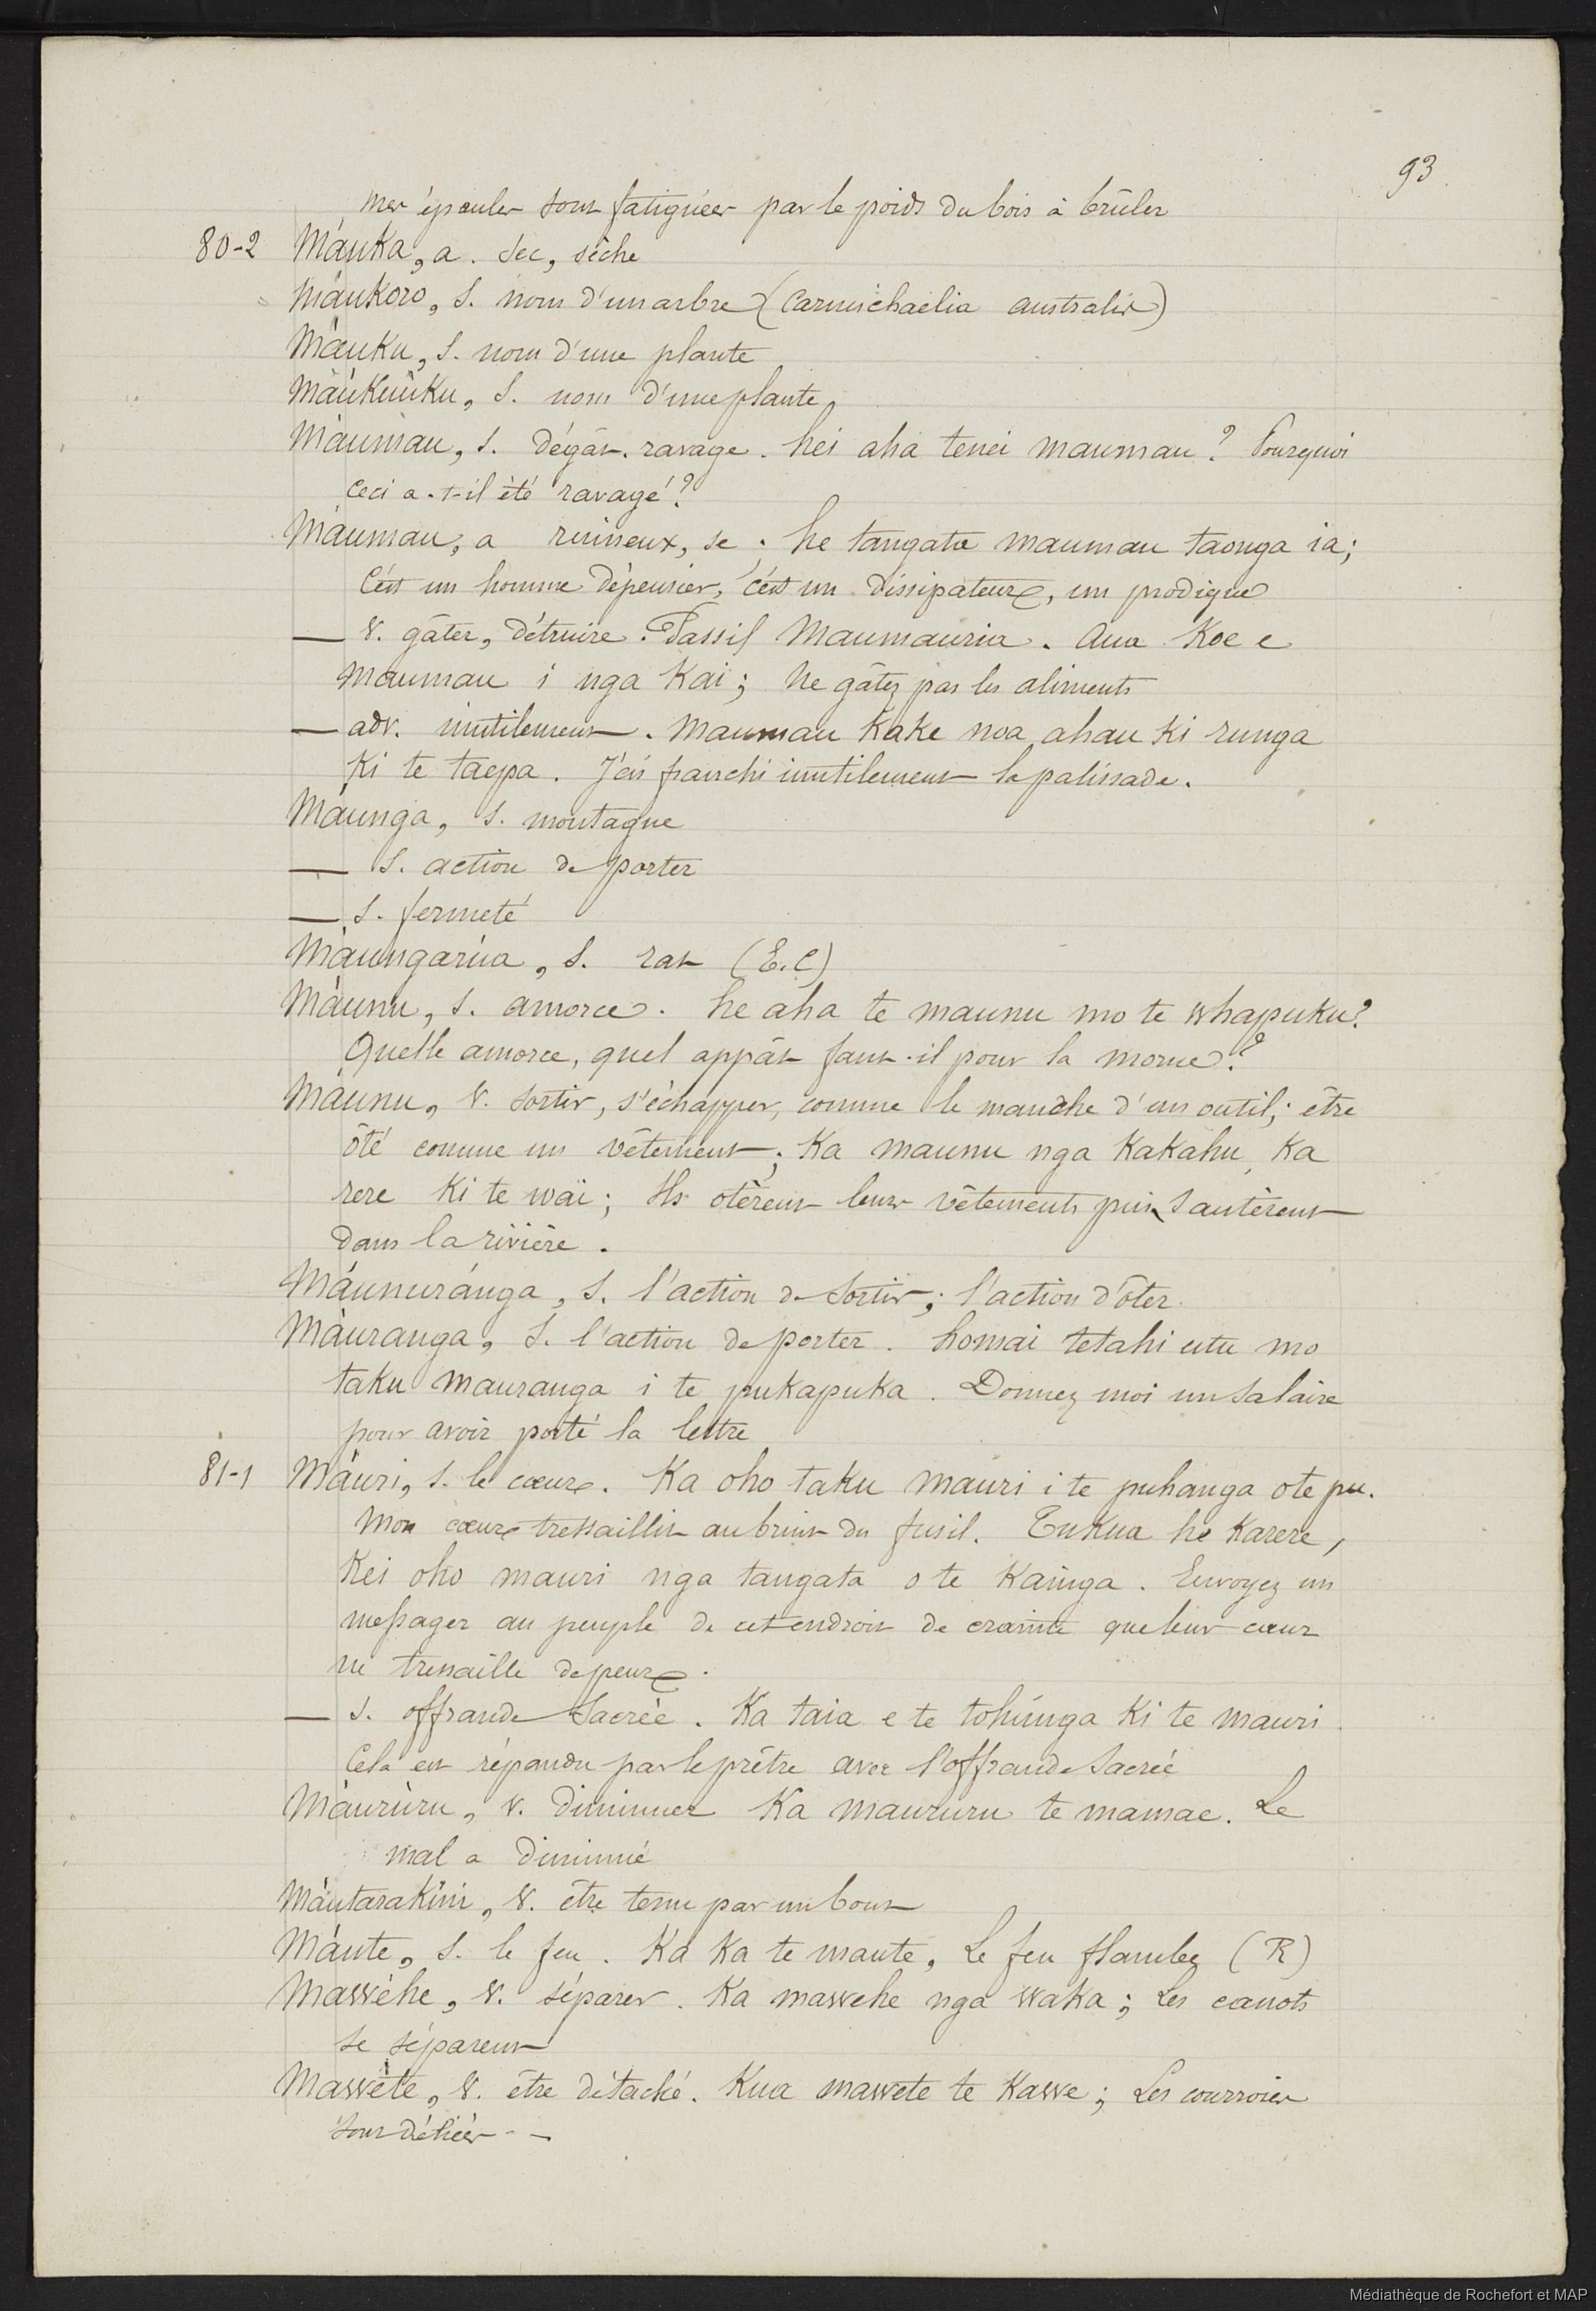 93
mes épaules sont fatiguées par le poids du bois à brûler
80-2 Máuka, a. sec, sèche
Máukoro, s. nom d'un arbre (Carmichaelia australis)
Máuku, s. nom d'une plante
Máukuùku, s. nom d'une plante
Máumau, s. dégât. ravage. hei aha tenei maumau? Pourquoi
ceci a-t-il été ravagé?
Máumau, a ruineux, se. he tangata maumau taonga ia;
C'est un homme dépensier, c'est un dissipateur, un prodigue
— v. gâter, détruire. Passif Maumauria. Aua koe e
maumau i nga kai; Ne gâtez pas les aliments
— adv. inutilement. Maumau kake noa ahau ki runga
ki te taepa. J'ai franchi inutilement la palissade.
Máunga, s. montagne
— s. action de porter
— s. fermeté
Máungarúa, s. rat (E.C)
Máunu, s. amorce. he aha te maunu mo te whapuku?
Quelle amorce, quel appât faut-il pour la morue?
Máunu, v. sortir, s'échapper, comme le manche d'un outil; être
ôté comme un vêtement; Ka maunu nga kakahu, ka
rere ki te wai; Ils otèrent leurs vêtements puis sautèrent
dans la rivière.
Máunuránga, s. l'action de sortir; l'action d'ôter.
Máuranga, s. l'action de porter. homai tetahi utu mo
taku mauranga i te pukapuka. Donnez moi un salaire
pour avoir porté la lettre
81-1 Máuri, s. le cœur. Ka oho taku mauri i te puhanga o te pu.
Mon cœur tressaillit au bruit du fusil. Tukua he karere,
kei oho mauri nga tangata o te kainga. Envoyez un
messager au peuple de cet endroit de crainte que leur cœur
ne tressaille de peur.
— s. offrande sacrée. Ka taia e te tohúnga ki te mauri.
Cela est répandu par le prêtre avec l'offrande sacrée
Máurùru, v. diminuer Ka maururu te mamae. Le
mal a diminué
Máutarakíni, v. être tenu par un bout
Máute, s. le feu. Ka ka te maute, Le feu flambe (R)
Mawèhe, v. séparer. Ka mawehe nga waka; Les canots
se séparent
Mawète, v. être détaché. Kua mawete te kawe; Les courroies
sont déliées
Médiathèque de Rochefort et MAP